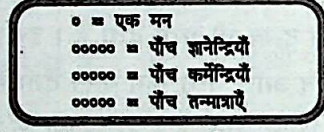 ० = एक मन
००००० = पाँच ज्ञानेन्द्रियाँ
००००० = पाँच कर्मेन्द्रियाँ
००००० = पाँच तन्मात्राएँ